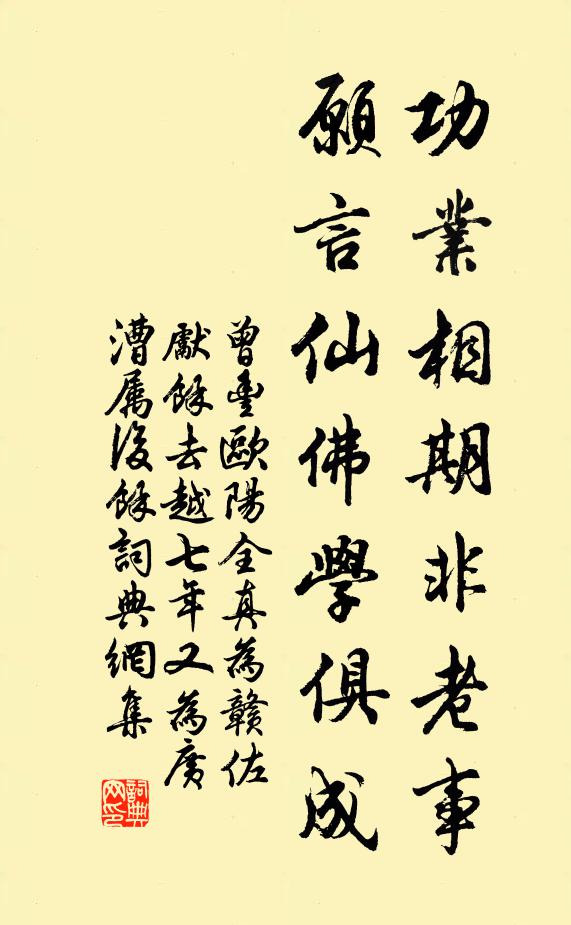 功業相期非老事
願言仙佛學俱成
曾豐歐陽全真為贛佐
獻餘去越七年又為廣
漕属後餘詞典網集
詞典網印